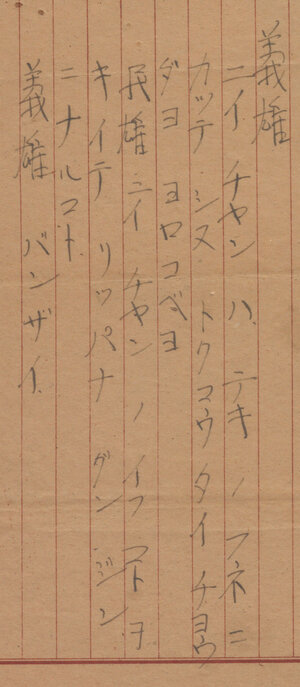 義雄
ニイ チャン ハ テキ ノ フネ ニ
カッテ シヌ トクコウ タイ チョウ
ダヨ ヨロコベヨ
民雄 ニイ チャン ノ イフ コト ヨ
キイテ リッパナ グン ジン
ニ ナルコト
義雄 バンザイ